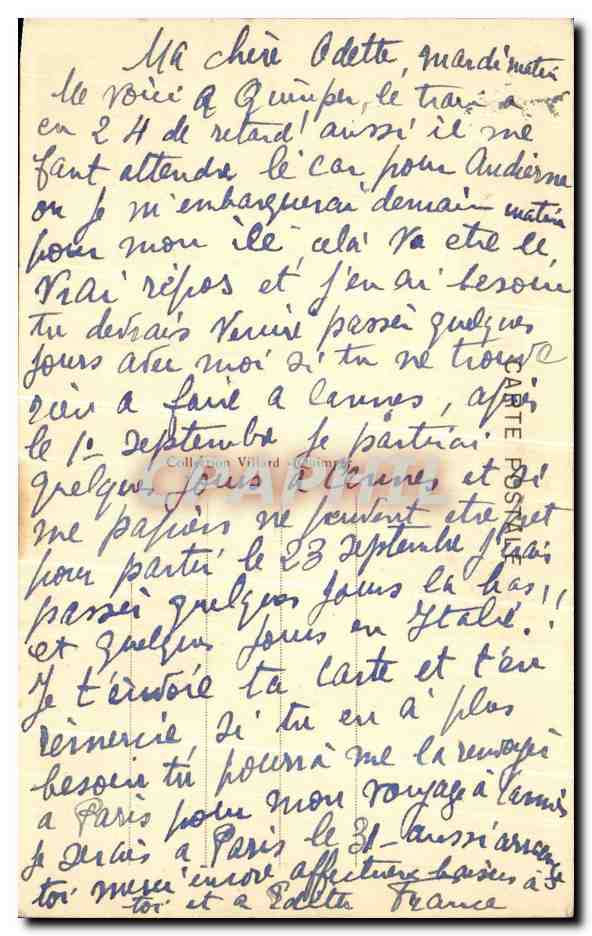 Ma chère Odette, mardi matin
Me voici a Quimper, le train a
eu 2 4 de retard! aussi il me
faut attendre le car pour Audierne
ou je m'embarquerai demain matin
pour mon ile, celà va etre le
vrai répos et j'en ai besoin
tu devrais venir passer quelques
jours avec moi si tu ne trouve
rien a faire a Cannes, après
le 1º septembre je partirai
Collection Villard - Quimper
quelques jours à Cannes et si
me papiers ne peuvent etre pret
pour partir le 23 septembre j'irais
passer quelques jours la bas!!
et quelques jours en Italie!
Je t'envoie ta carte et t'en
remercie, si tu en à plus
besoin tu pourra me la renvoyer
a Paris pour mon voyage à Cannes
je serais a Paris le 31 - aussi arrange
toi merci encore affectueux baisers à
toi et a Edith France
CARTE POSTALE
CPAPHIL